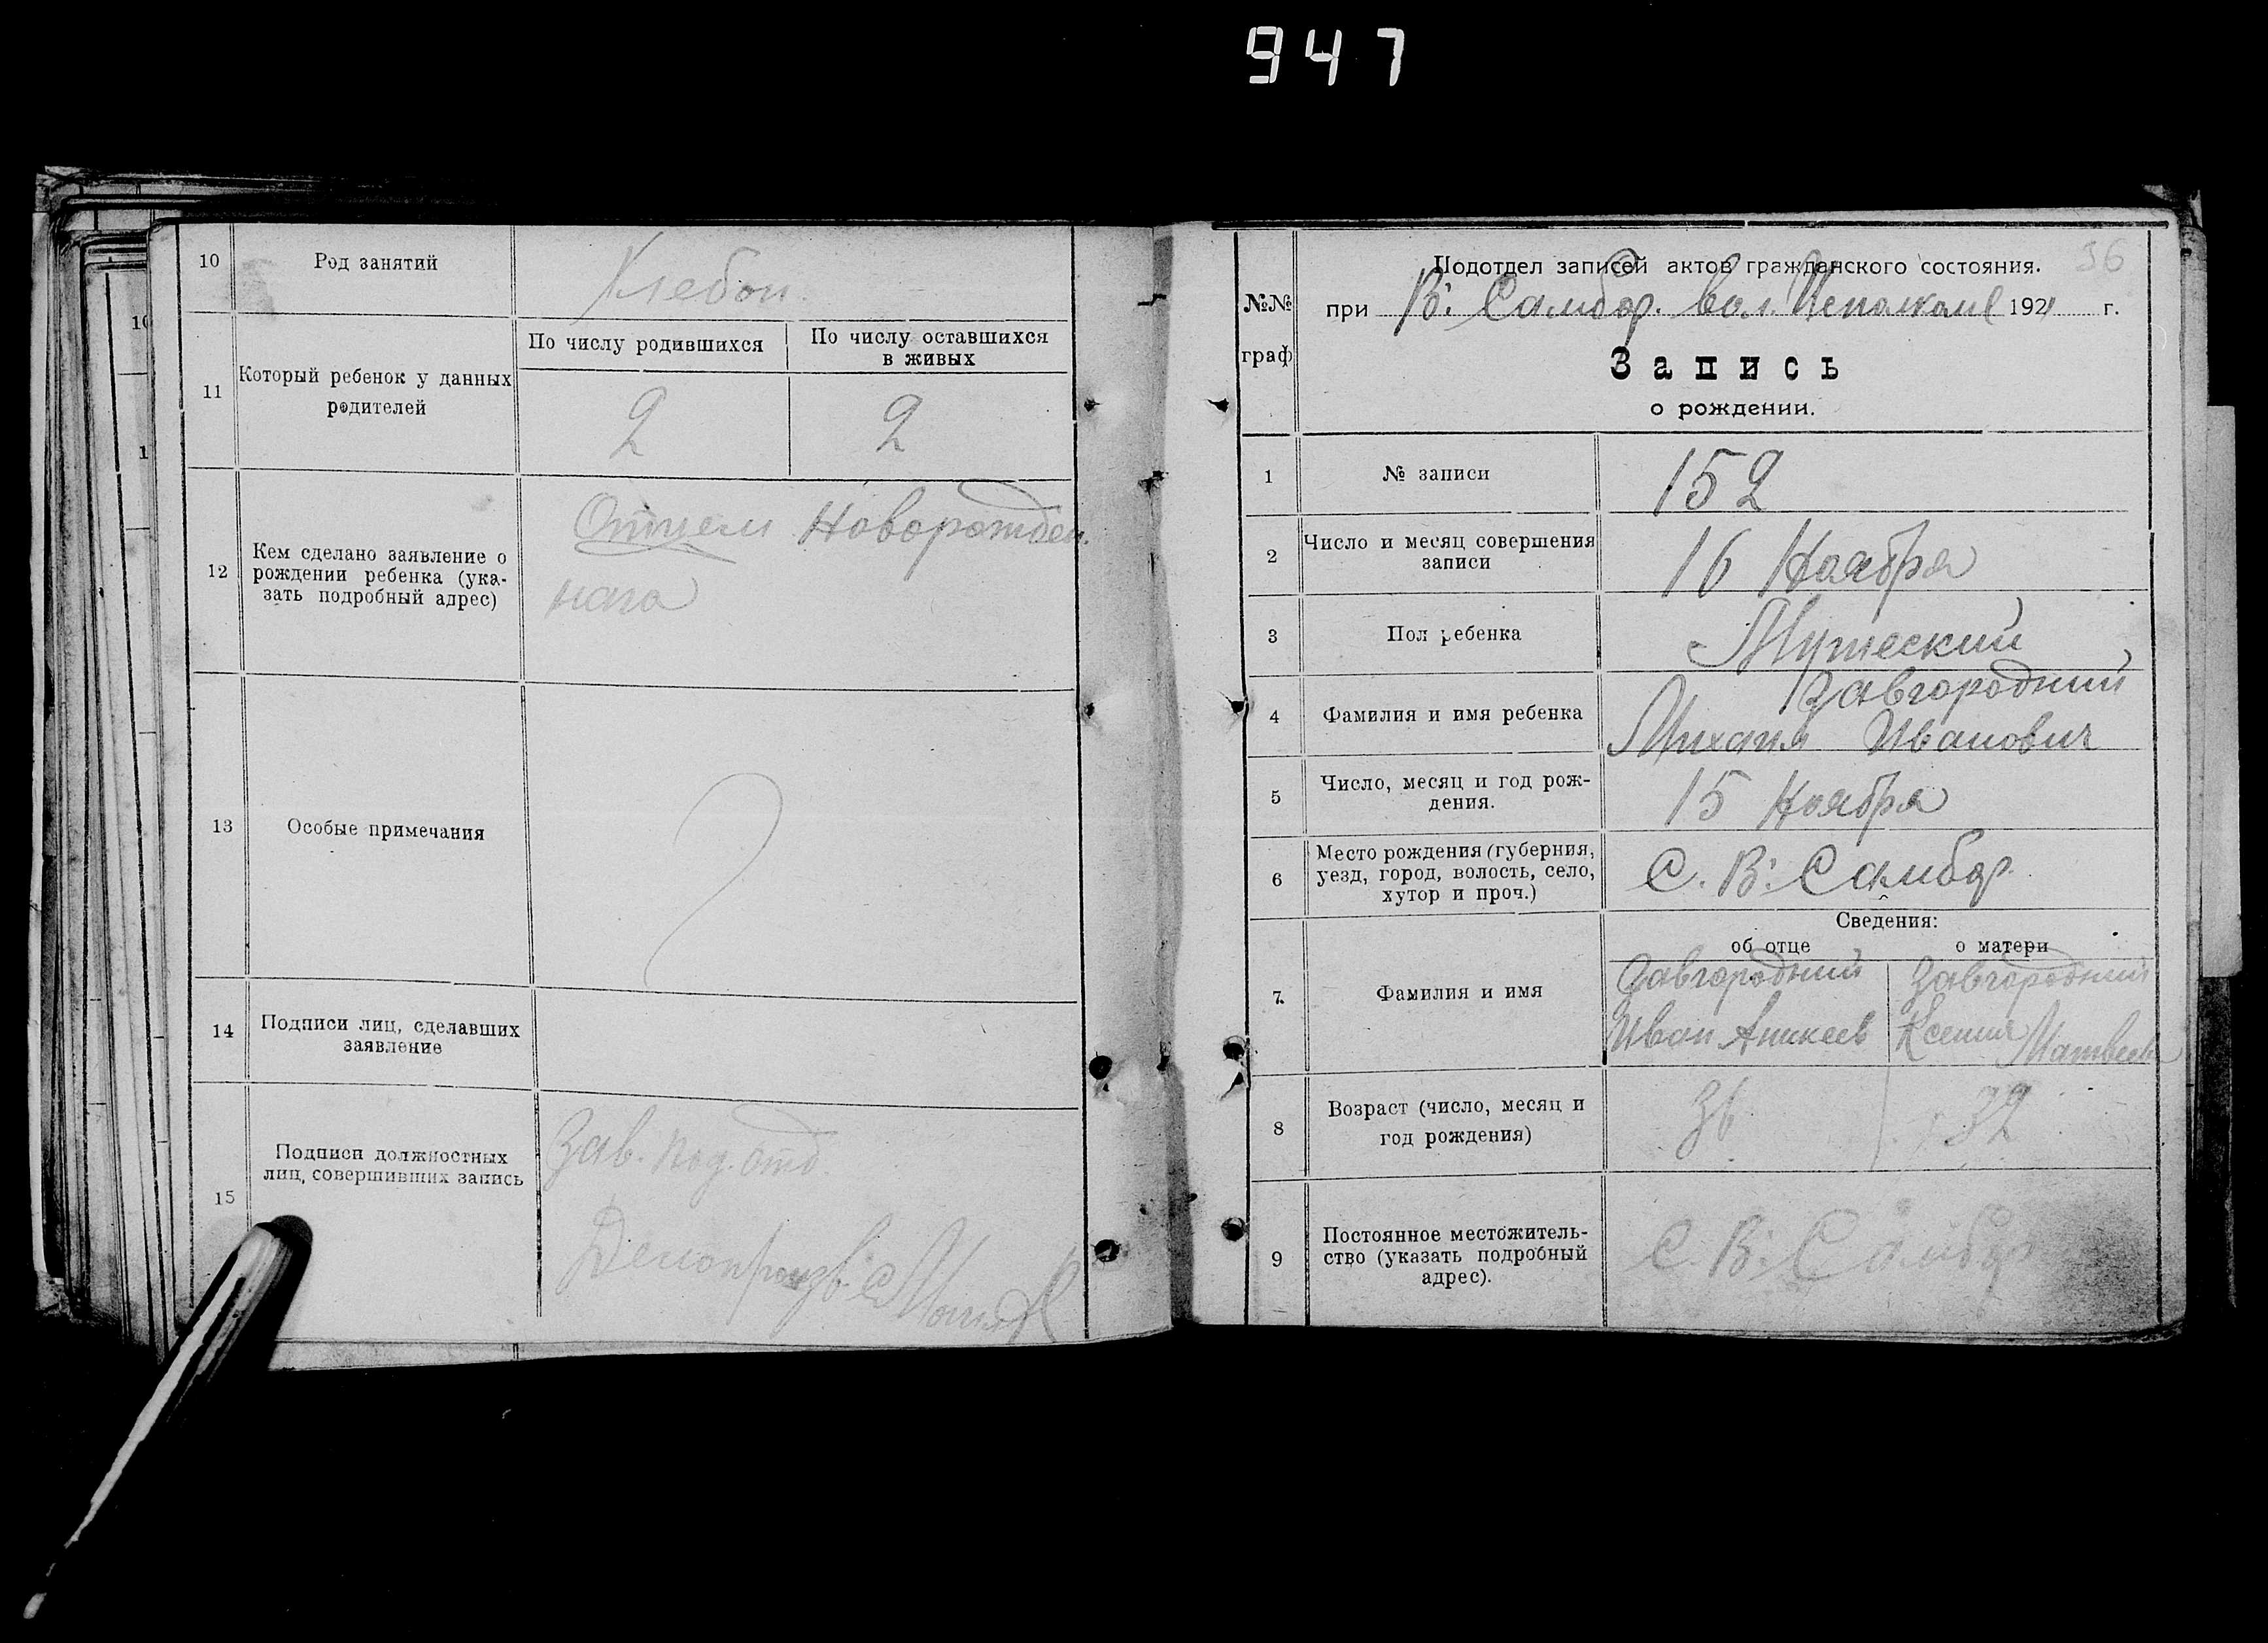 947
10
Род занятий
Хлебоп.
11
Который ребенок у данных
родителей
По числу родившихся
По числу оставшихся
в живых
2
2
12
Кем сделано заявление о
рождении ребенка (ука-
зать подробный адрес)
Отцем Новорожден.
наго
13
Особые примечания
14
Подписи лиц, сделавших
заявление
15
Подписи должностных
лиц, совершивших запись
Зав. под. отд.
Делопроизв.
36
№№
граф
Подотдел записей актов гражданского состояния.
при В. Самбор. вол. Исполкоме 1921 г.
Запись
о рождении.
1
№ записи
152
2
Число и месяц совершения
записи
16 Ноября
3
Пол ребенка
Мужеский
4
Фамилия и имя ребенка
Завгородний
Михаил Иванович
5
Число, месяц и год рож-
дения.
15 Ноября
6
Место рождения (губерния,
уезд, город, волость, село,
хутор и проч.)
С. В. Самбор.
Сведения:
об отце
о матери
7.
Фамилия и имя
Завгородний
Иван Аникеев
Завгородний
Ксения Матвеева
8
Возраст (число, месяц и
год рождения)
36
32
9
Постоянное местожитель-
ство (указать подробный
адрес).
С. В. Самбор